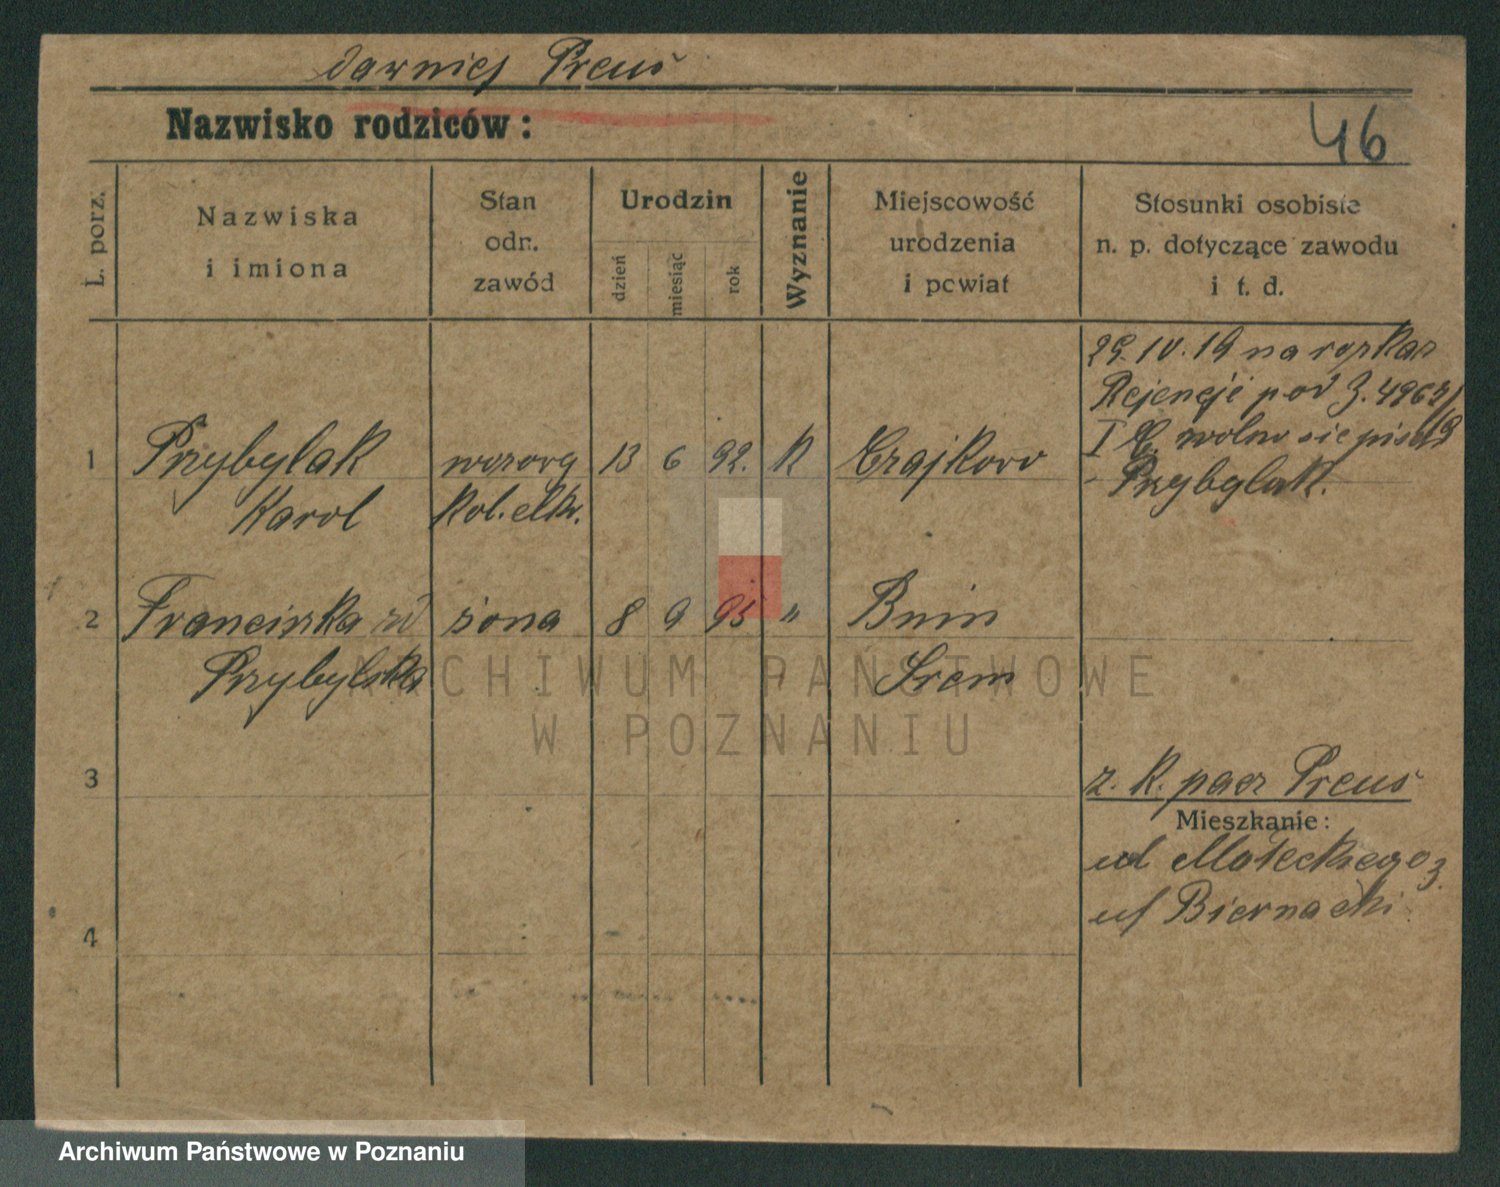 dawniej Preuś
Nazwisko rodziców:
46
L. porz.
Nazwiska
i imiona
Stan
odn.
zawód
Urodzin
dzień
miesiąc
rok
Wyznanie
Miejscowość
urodzenia
i powiat
Stosunki osobiste
n. p. dotyczące zawodu
i t. d.
29. IV. 19 na rozkaz
Rejencji pod Z. 4962/19
I E. wolno się pisać
Przybylak.
1 Przybylak 13 6 92. K Czajkowo
Karol
2 Franciszka żona 8 9 95 " Bnin
Przybylska Śrem
3
z. K. pacz Preuś
Mieszkanie:
ul Małeckiego 3.
uf Biernacki.
4
ARCHIWUM PAŃSTWOWE
W POZNANIU
Archiwum Państwowe w Poznaniu